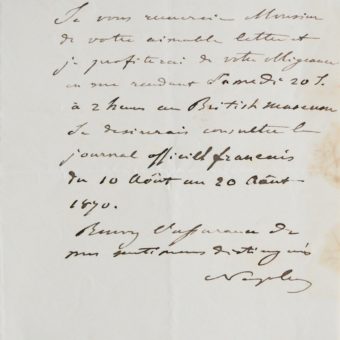 Je vous remercie Monsieur
de votre aimable lettre et
je profiterai de votre
en me rendant Samedi 20 J.
à 2 heures au British museum
Je desirerais consulter le
journal officiel français
du 10 Août au 20 Août
1870.
Recevez l'assurance de
mes sentimens distingués
Napoléon